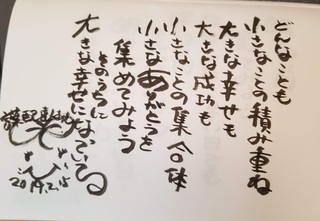 どんなことも
小さなことの積み重ね
大きな幸せも
大きな成功も
小さなことの集合体
小さなありがとうを
集めてみよう
そのうちに
大きな幸せになっている
2019.2.15